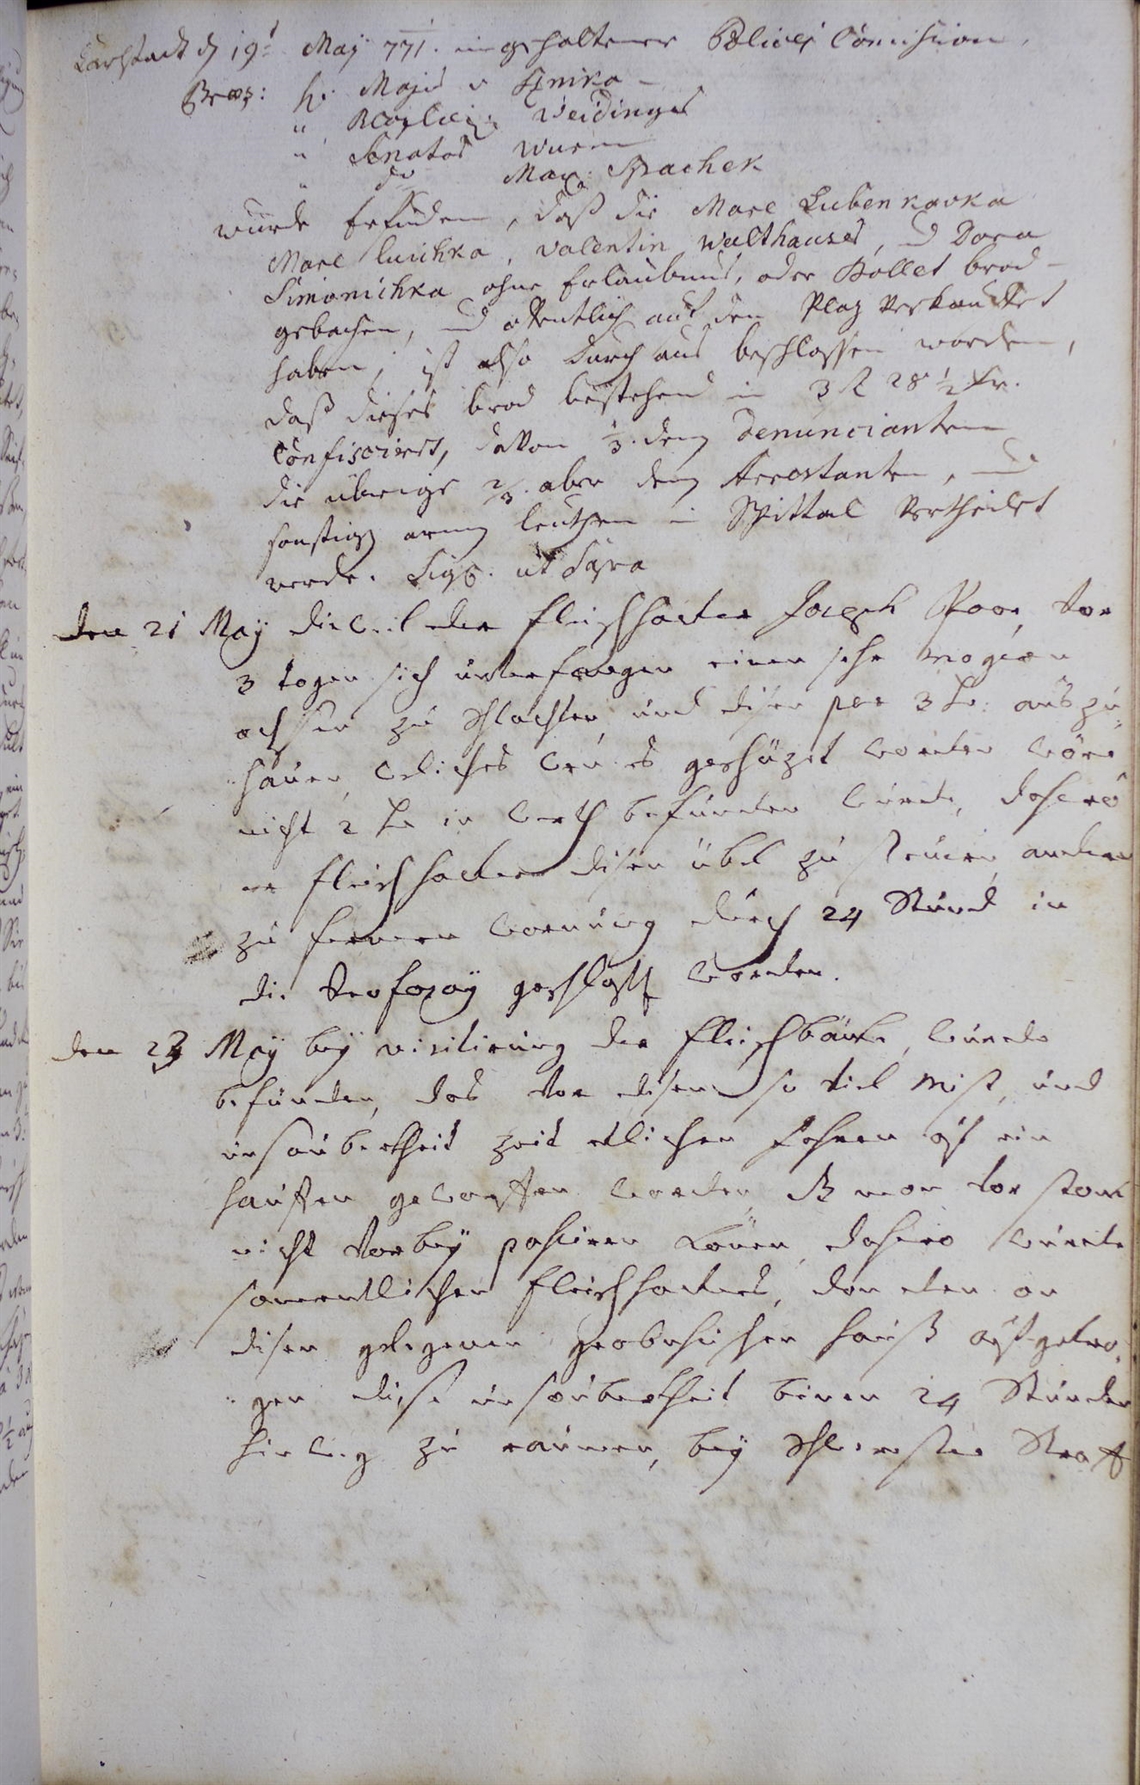 Carlstadt d 19t May 771. in gehaltener Policey Comission,
Præs: H: Major v Knika
" Weidinger
" Senator Wurm
" do Max: Spachek
wurde befunden, daß die Mare Lubenkavka
Mare Luichka, Valentin Walthauser, und Dora
Simonichka ohne Erlaubnus, oder Pollet brod
gebachen, und öffentlich auf den Plaz Verkauffet
haben, ist also durchaus beschlossen worden,
daß dieses brod bestehend in 3 R 28 ½ Kr.
Confiscirt, davon ⅓. dem Denuncianten
die übrige ⅔. aber dem Arrestanten, und
sonstig arm leuthen in Spittal Vertheilet
werde. Sigs. ut Supra
den 21 May die weil der fleischhacker Joseph Poor, vor
3 tagen sich unterfangen einen sehr mageren
ochsen zu schlachten, und disen per 3 Kr: auszu
hauen, welches wen es geschäzet worden wäre
nicht 2 Kr in werth befunden wurde, dahero
er fleischhacker disen übel zu steuern, andern
zu fernern warnung durch 24 Stund in
die geschlossen worden.
den 23 May bey visitirung der fleischbänke, wurde
befunden, das vor disen so viel mist, und
unsauberkeit zeit etlichen Jahren auf ein
hauffen geworffen worden, das man vor stank
nicht vorbey passiren können, dahero wurde
samentlichen fleischhackers, von den an
disen gelegenen haus aufgetra
gen dise unsauberkeit binen 24 Stunden
hinweg zu raumen, bey schwerster Straff